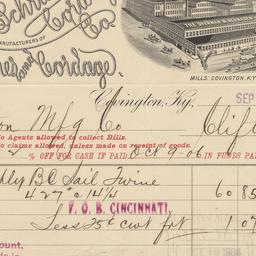 Cord
Co
MANUFACTURERS OF
and Cordage.
MILLS: COVINGTON, KY.
Covington, Ky.,
SEP
Mfg Co
Clif
No Agents allowed to collect Bills.
No claims allowed, unless made on receipt of goods.
2 % OFF FOR CASH IF PAID Oct 9-06 IN FUNDS PA
BC Sail Twine
427 @ 14¼ 60 85
F. O. B. CINCINNATI
Less 25¢ cwt frt 1 07